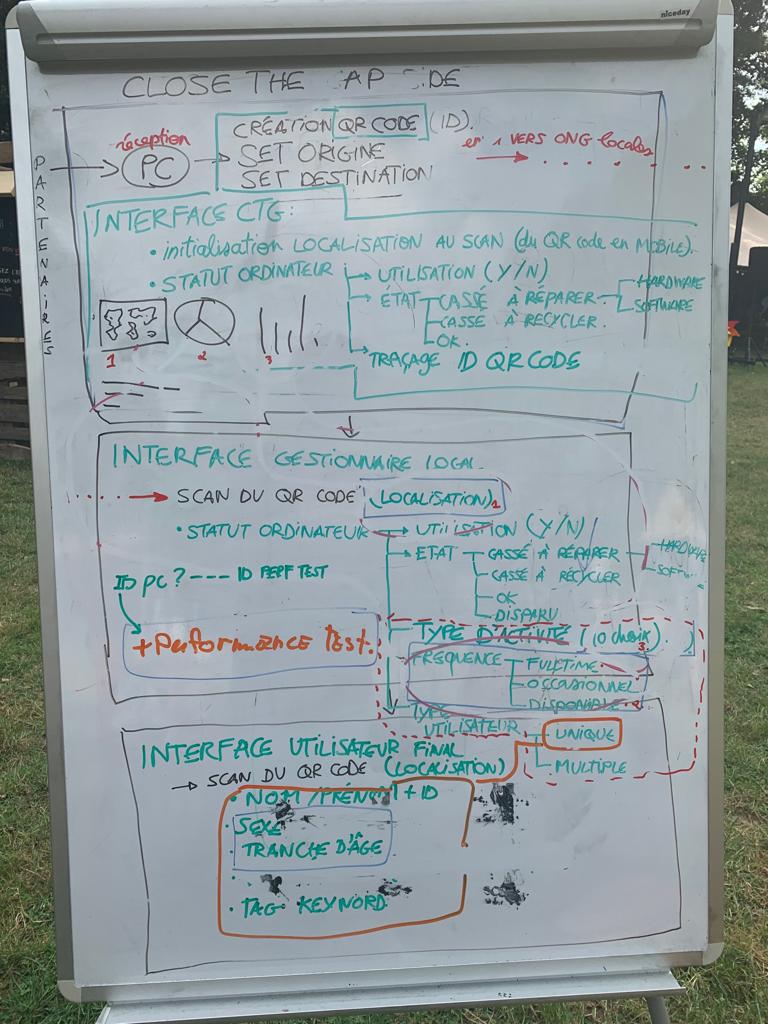 niceday
CLOSE THE AP DE
PARTENAIRES
réception
PC
CRÉATION QR CODE (ID).
SET ORIGINE
SET DESTINATION
en 1 VERS ONG locales
INTERFACE CTG:
• initialisation LOCALISATION AU SCAN (du QR code en MOBILE).
• STATUT ORDINATEUR
UTILISATION (Y/N)
ÉTAT
CASSÉ À RÉPARER
HARDWARE
SOFTWARE
CASSÉ À RECYCLER.
OK.
TRAÇAGE ID QR CODE
1
2
3
INTERFACE GESTIONNAIRE LOCAL
SCAN DU QR CODE (LOCALISATION) 1
• STATUT ORDINATEUR
UTILISATION (Y/N)
ETAT
CASSÉ À RÉPARER
HARDWARE
SOFTW
CASSÉ À RÉCYCLER
OK
DISPARU
ID PC? --- ID PERF TEST
+ Performence Test.
TYPE D'ACTIVITÉ (10 choix)
3.
FREQUENCE
FULLTIME
OCCASIONNEL
DISPONIBLE
2
TYPE UTILISATEUR
UNIQUE
MULTIPLE
INTERFACE UTILISATEUR FINAL
→ SCAN DU QR CODE (LOCALISATION)
• NOM / PRÉNOM + ID
• SEXE
• TRANCHE D'ÂGE
• TAG KEYWORD